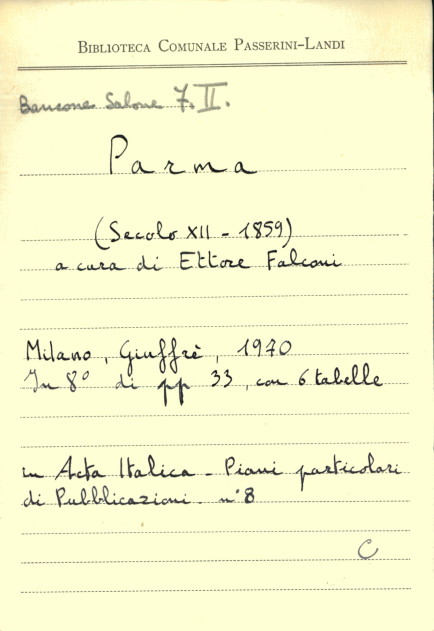 BIBLIOTECA COMUNALE PASSERINI-LANDI
Bancone Salone 7. II.
Parma
(Secolo XII - 1859)
a cura di Ettore Falconi
Milano, Giuffrè, 1970
In 8° di pp 33, con 6 tabelle
in Acta Italica - Piani particolari
di Pubblicazioni - n° 8
C